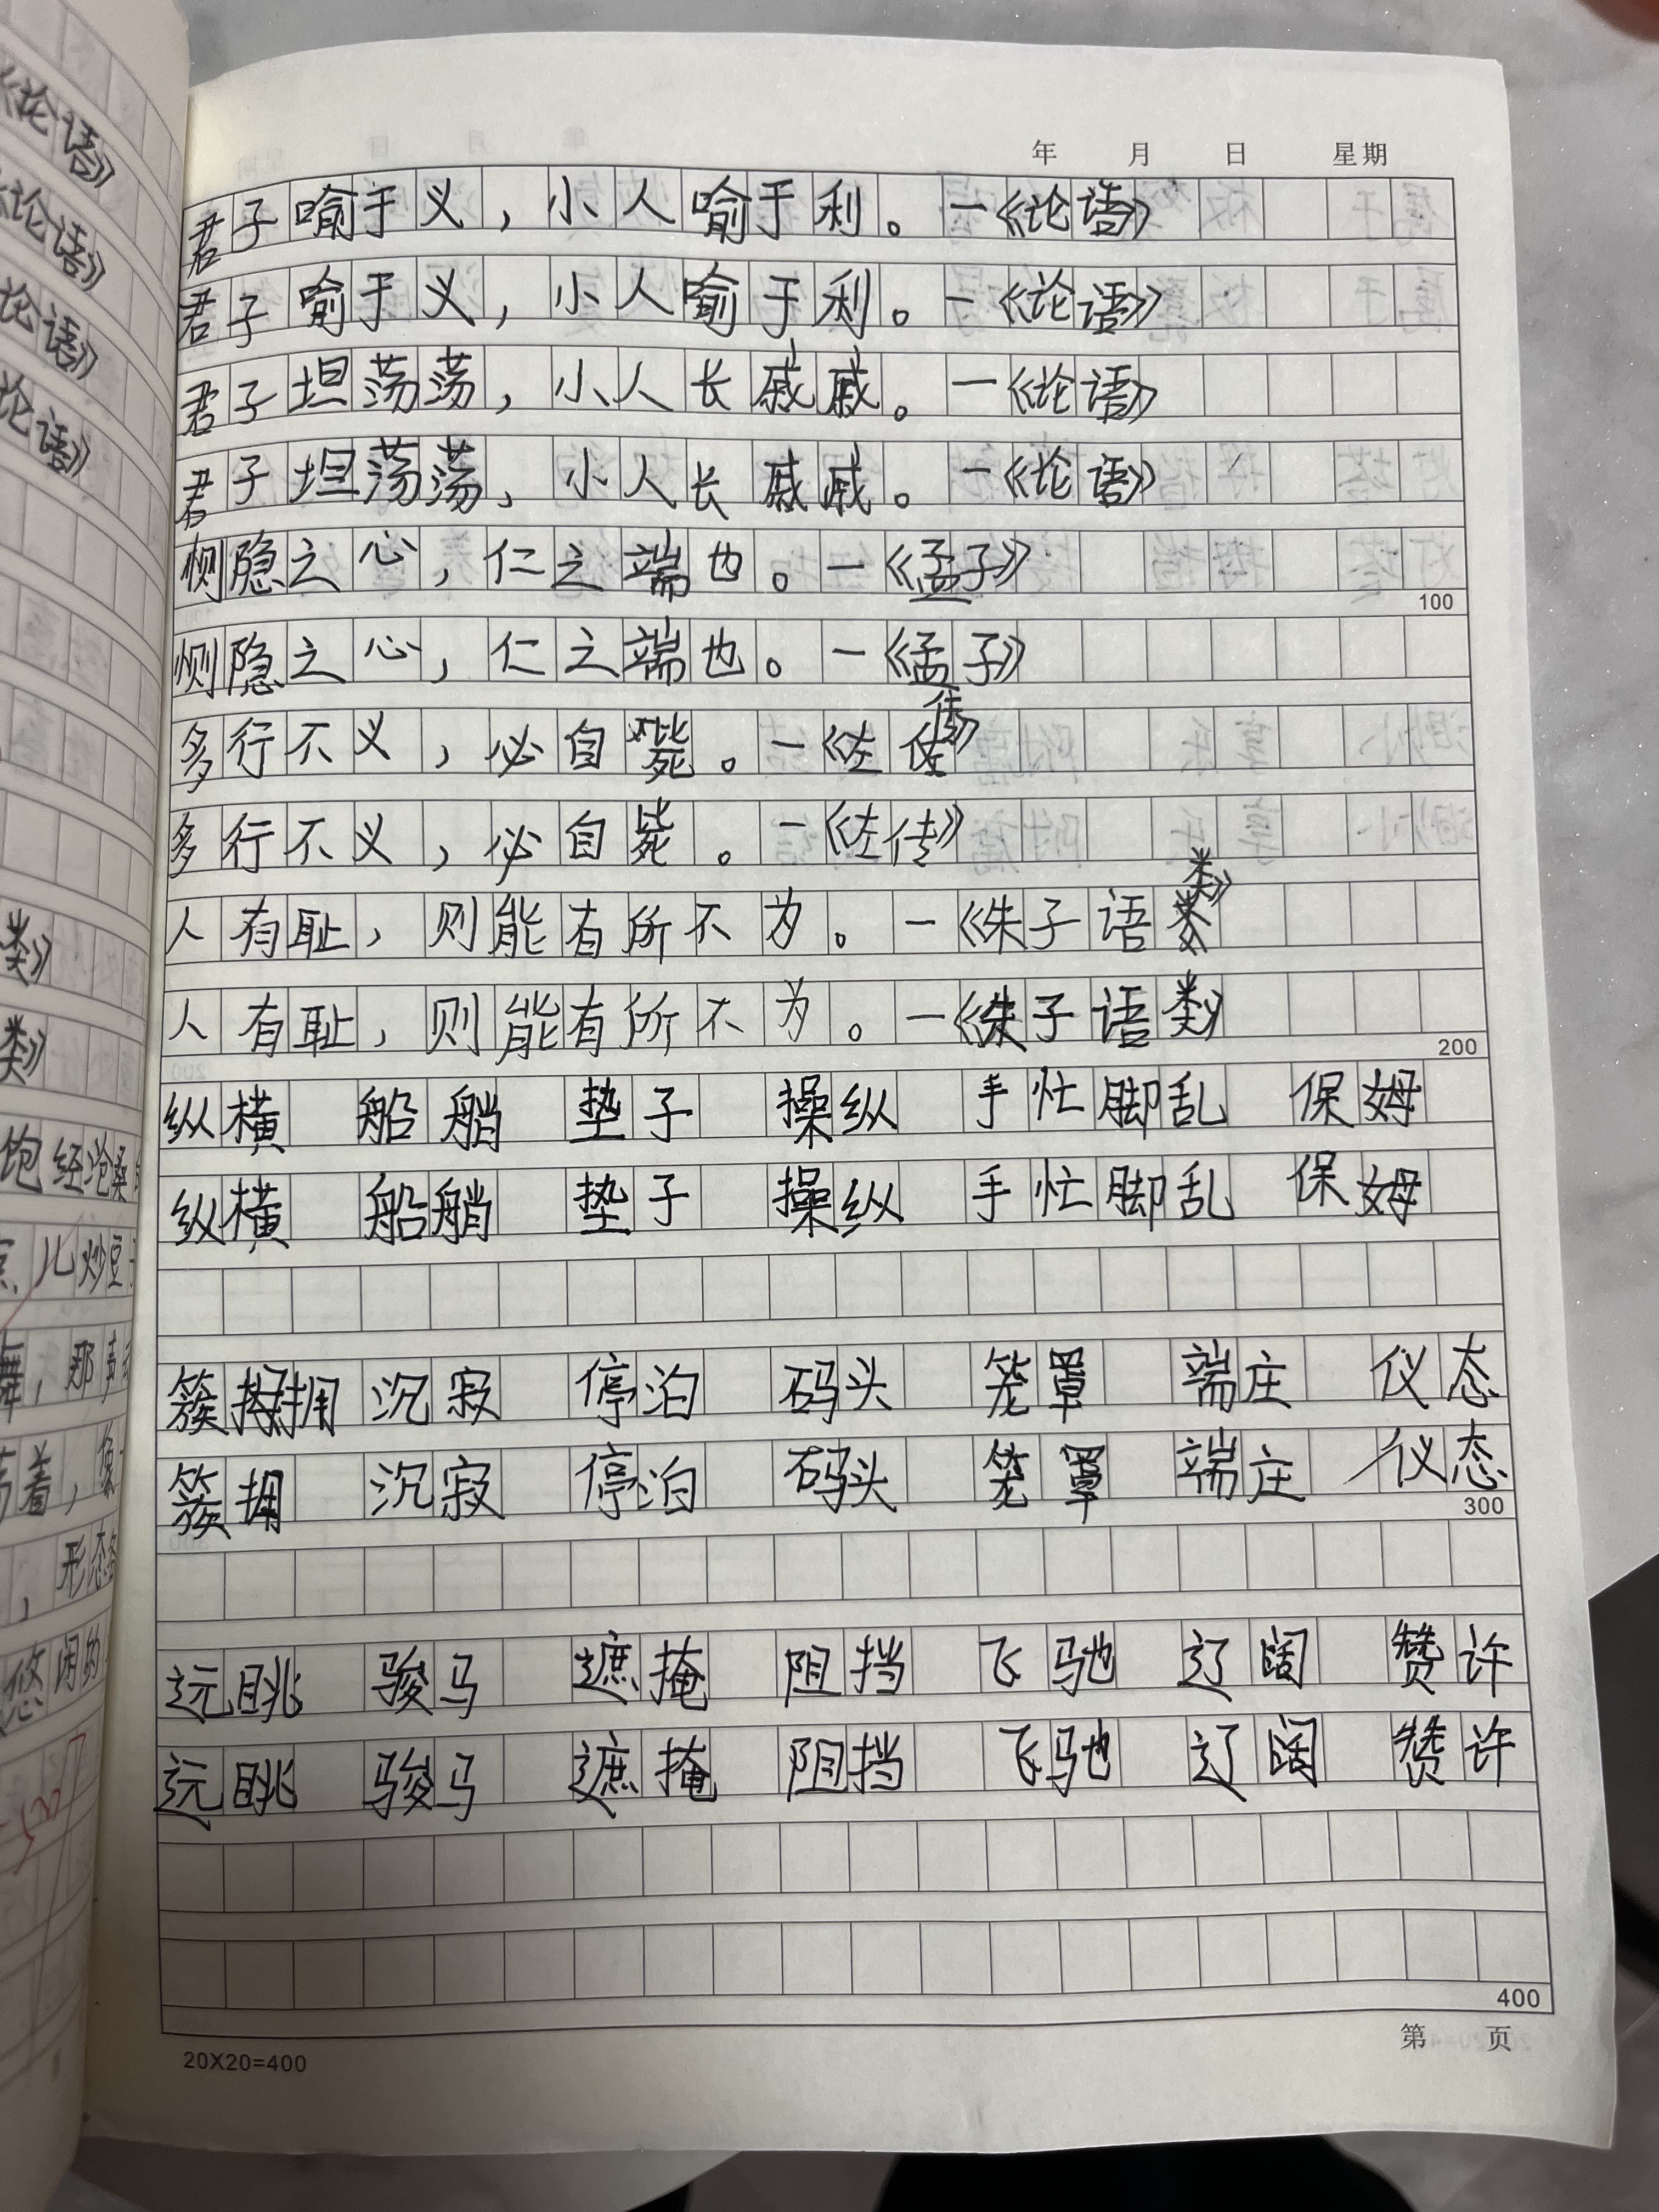 《论语》
《论语》
论语》
论语》
类》
类》
饱经沧桑
儿炒豆
舞，那声
着，像
，形态各
悠闲的
年 月 日 星期
君子喻于义，小人喻于利。—《论语》
君子喻于义，小人喻于利。—《论语》
君子坦荡荡，小人长戚戚。—《论语》
君子坦荡荡，小人长戚戚。—《论语》
恻隐之心，仁之端也。—《孟子》
100
恻隐之心，仁之端也。—《孟子》
多行不义，必自毙。—《左传》
多行不义，必自毙。—《左传》
人有耻，则能有所不为。—《朱子语类》
人有耻，则能有所不为。—《朱子语类》
200
纵横 船艄 垫子 操纵 手忙脚乱 保姆
纵横 船艄 垫子 操纵 手忙脚乱 保姆
簇拥 沉寂 停泊 码头 笼罩 端庄 仪态
簇拥 沉寂 停泊 码头 笼罩 端庄 仪态
300
远眺 骏马 遮掩 阻挡 飞驰 辽阔 赞许
远眺 骏马 遮掩 阻挡 飞驰 辽阔 赞许
400
第 页
20X20=400